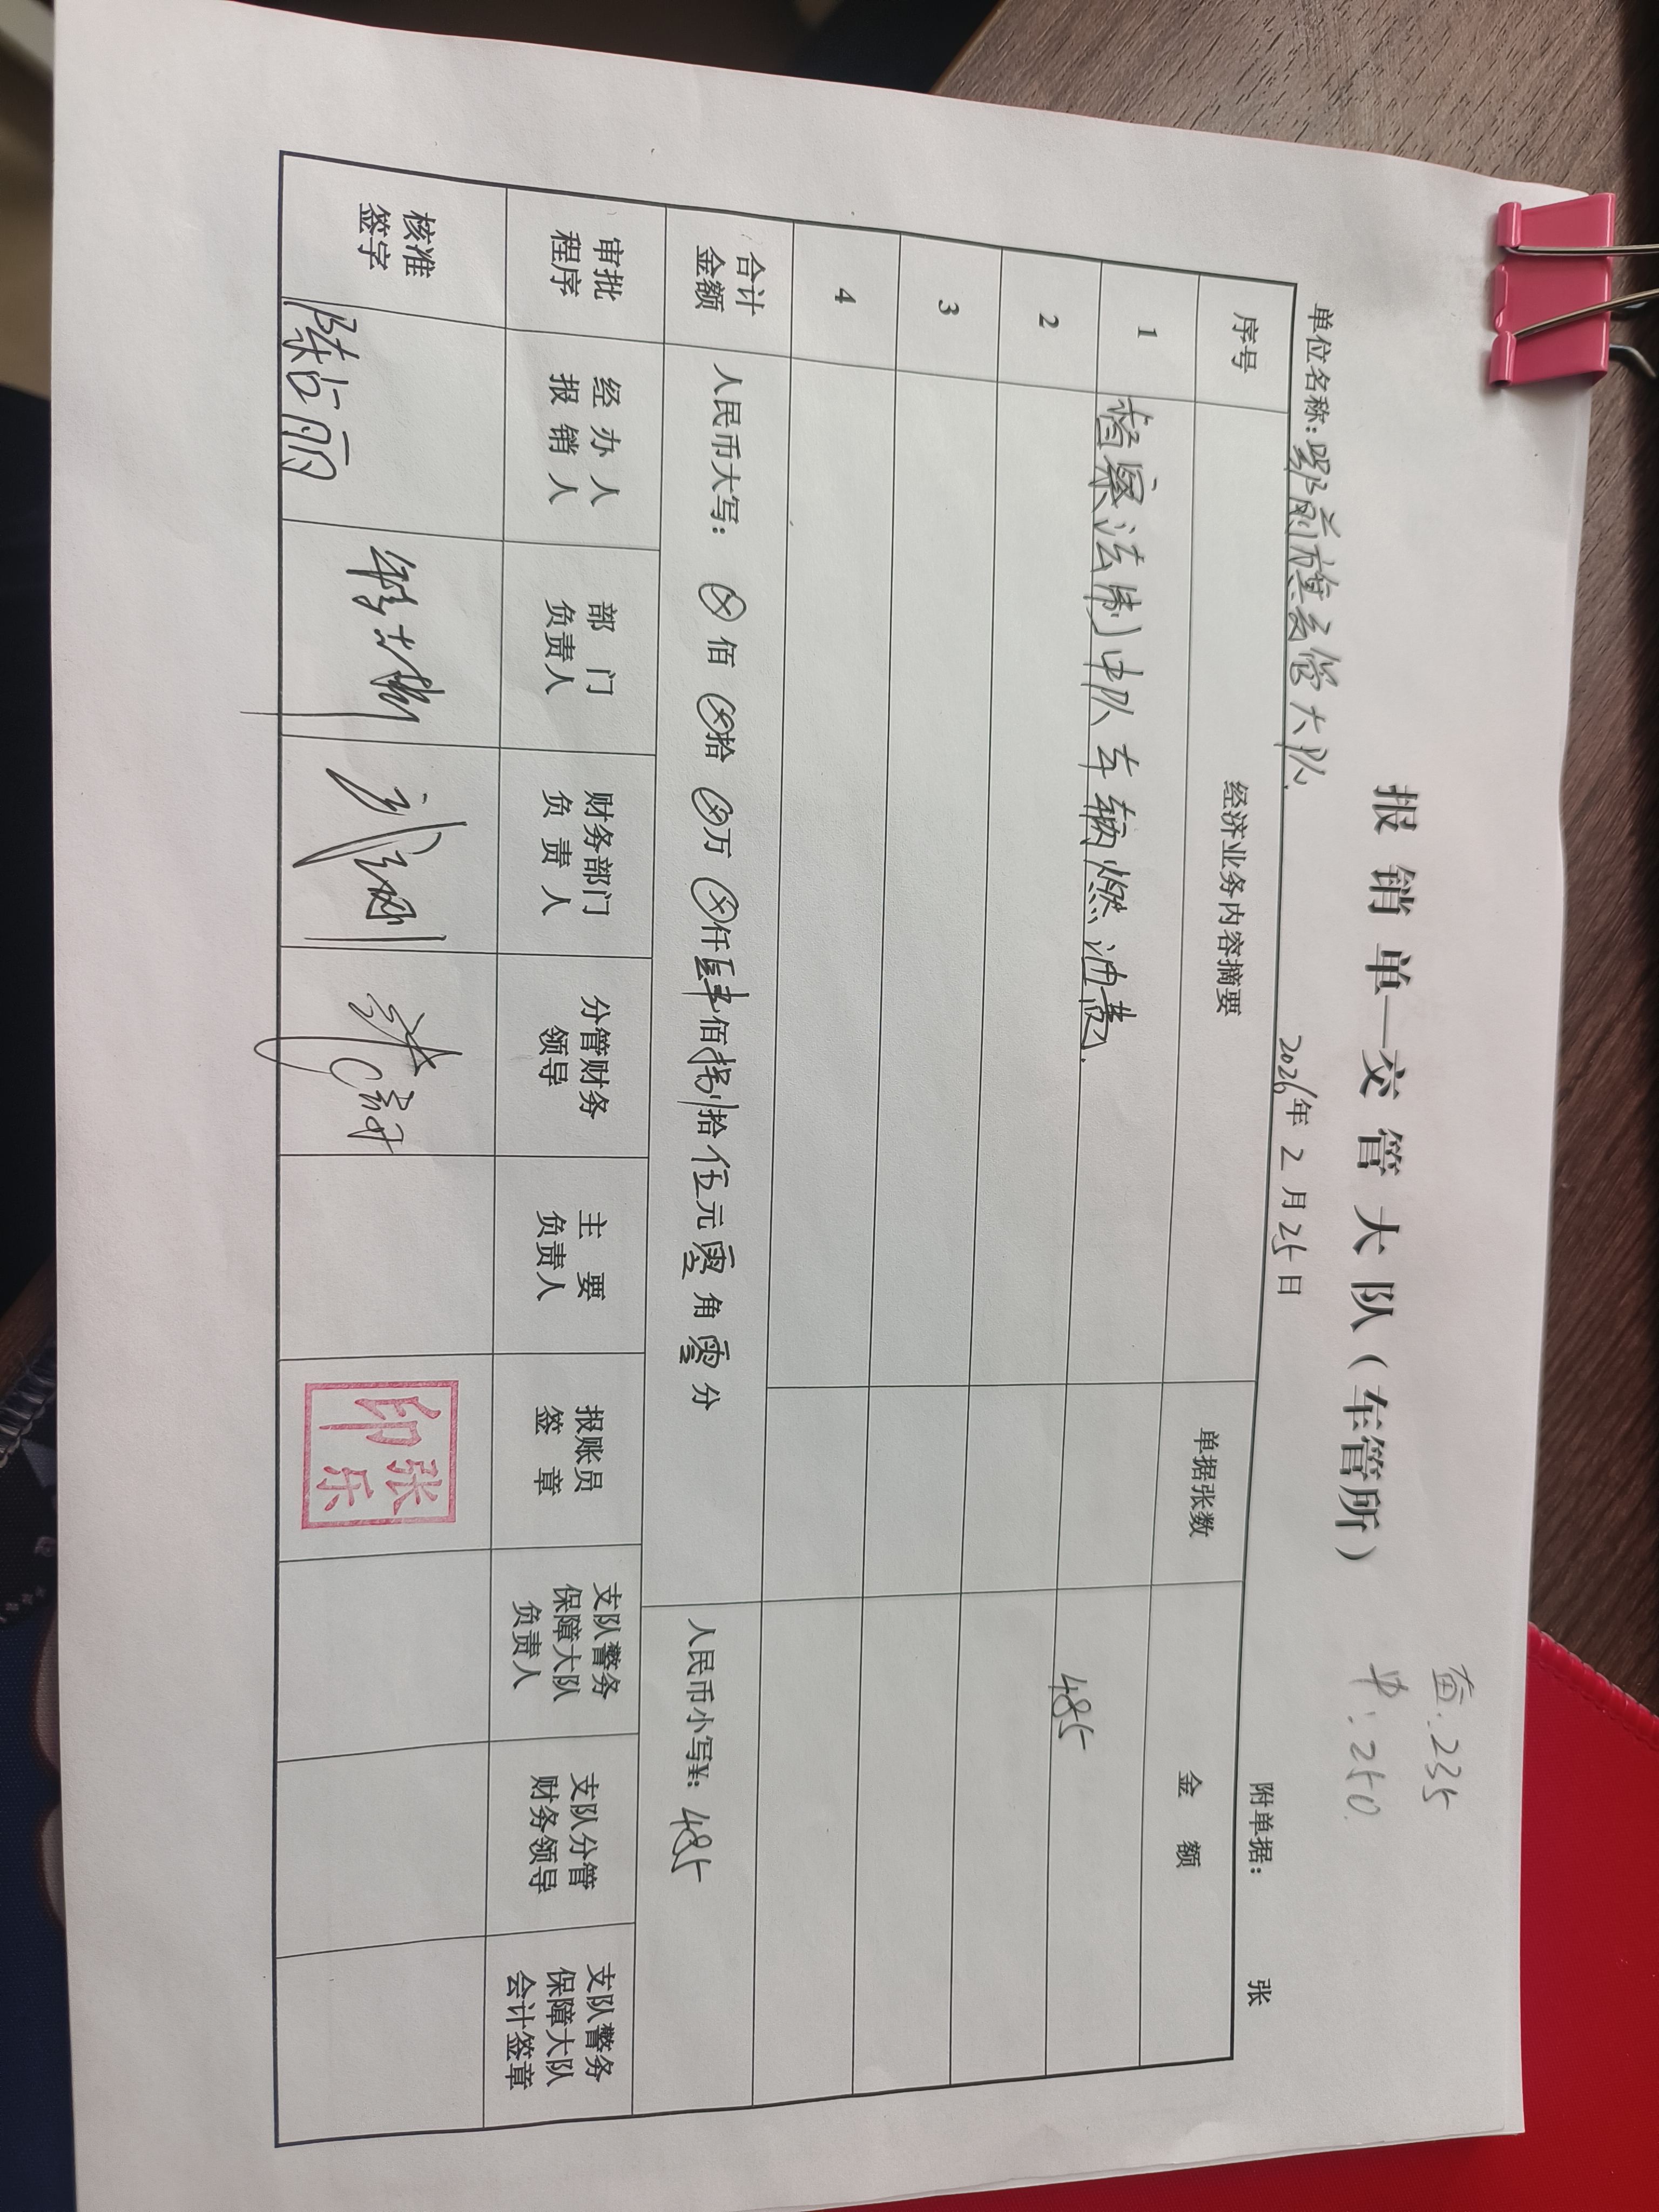 查:235
中:250.
报销单—交管大队（车管所）
单位名称：鄂前旗交管大队. 2026年2月25日 附单据： 张
序号 经济业务内容摘要 单据张数 金额
1 督察法制中队车辆燃油费. 485
2
3
4
合计金额 人民币大写： ⊗佰⊗拾⊗万⊗仟肆佰捌拾伍元零角零分 人民币小写¥：485
审批程序 经办人报销人 部门负责人 财务部门负责人 分管财务领导 主要负责人 报账员签章 支队警务保障大队负责人 支队分管财务领导 支队警务保障大队会计签章
核准签字 陈占丽 张乐印